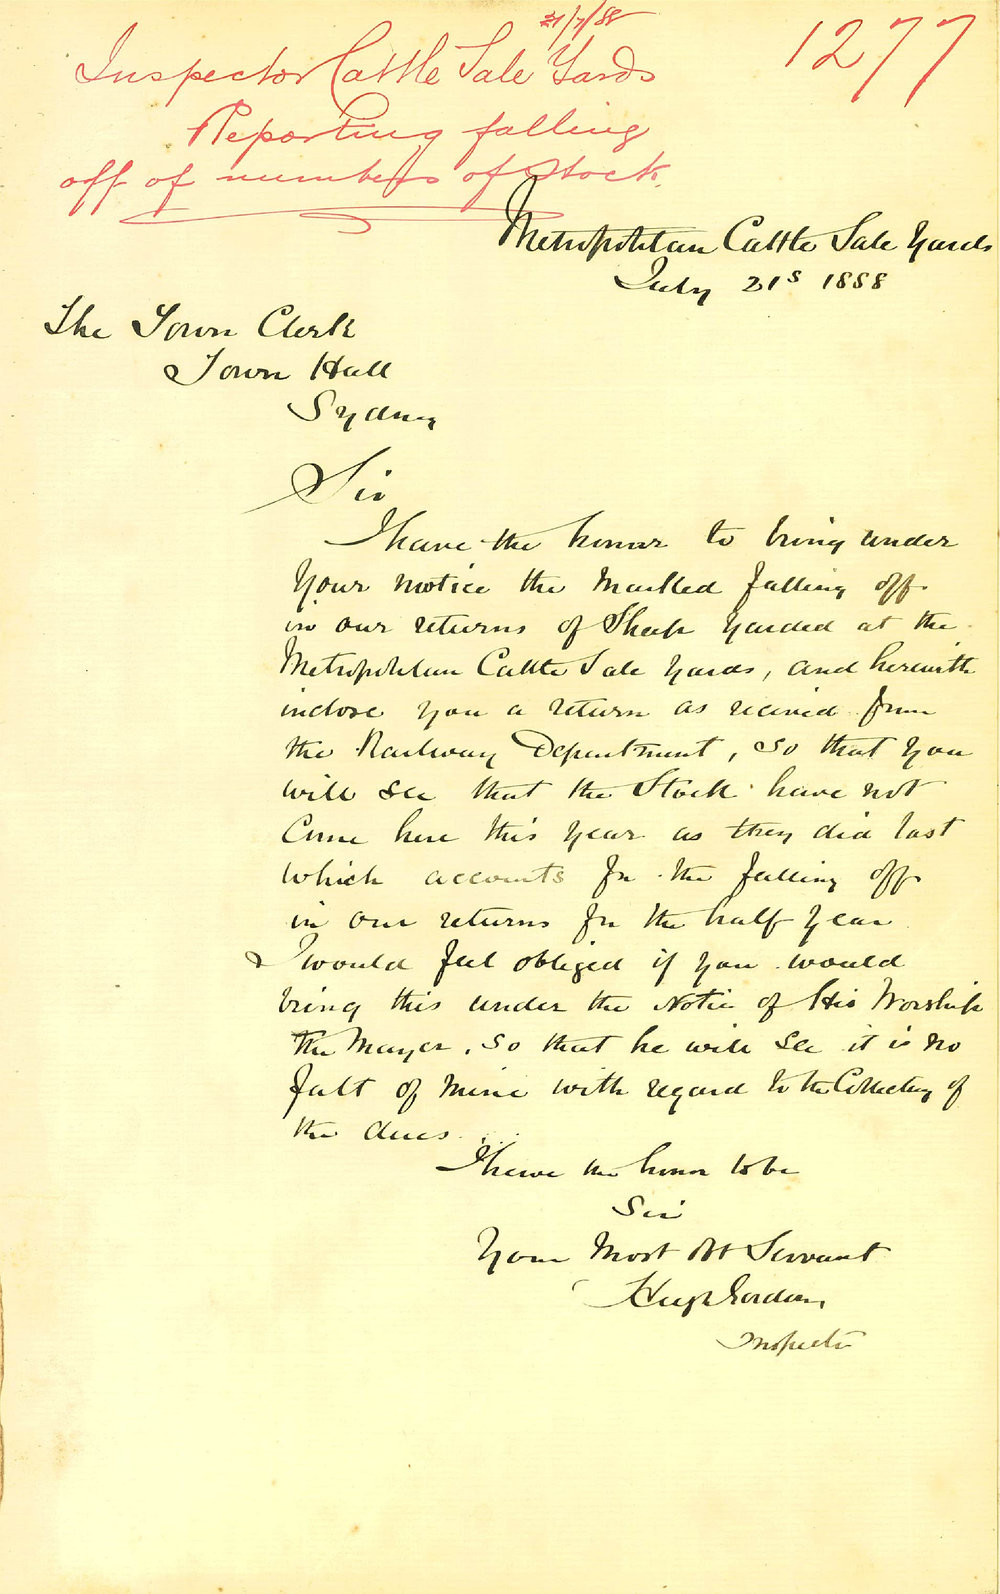 21/7/88
1277
Inspector Cattle Sale Yards
Reporting falling
off of numbers of stock.
Metropolitan Cattle Sale Yards
July 21s 1888
The Town Clerk
Town Hall
Sydney
Sir
I have the honor to bring under
Your notice the Marked falling off
in our returns of Sheep Yarded at the
Metropolitan Cattle Sale Yards, and herewith
inclose you a return as recived from
the Railway Department, So that you
will see that the Stock have not
Come here this year as they did last
Which accounts for the falling off
in our returns for the half Year
I would feel obliged if you would
bring this under the Notice of His Worship
The Mayor, So that he will see it is no
falt of mine with regard to the Collecting of
the dues
I have the honor to be
Sir
Your Most Obt Servant
Hugh Gordon
Inspector